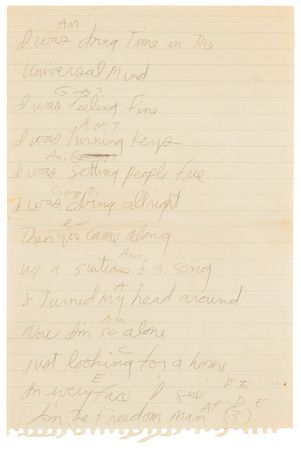 Am
I was doing Time in The
Universal Mind
G or ?
I was Feeling Fine
A or ?
I was Turning Keys
Am,
I was Setting people free
C or ?
I was doing allright
em
Then you came along
Am
w/ a suitcase & a song
A
& Turned my head around
Am
Now I'm so alone
C
just looking for a home
E
In every Face I see
I'm the Freedom man A D E (3)